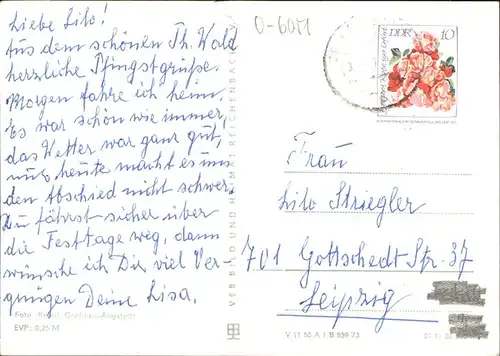 Liebe Lilo!
Aus dem schönen Th. Wald
herzliche Pfingstgrüße.
Morgen fahre ich heim.
Es war schön wie immer,
das Wetter war ganz gut,
nur heute macht es uns
den Abschied nicht schwer.
Du fährst sicher über
die Festtage weg, dann
wünsche ich Dir viel Ver-
gnügen Deine Lisa.
Foto
EVP: 0,25 M
VEB BILD UND HEIMAT REICHENBACH
0-6051
DDR 10
Frau
Lilo Striegler
701 Gottschedt Str. 37
Leipzig
V 11 50 A 1 B 859 73